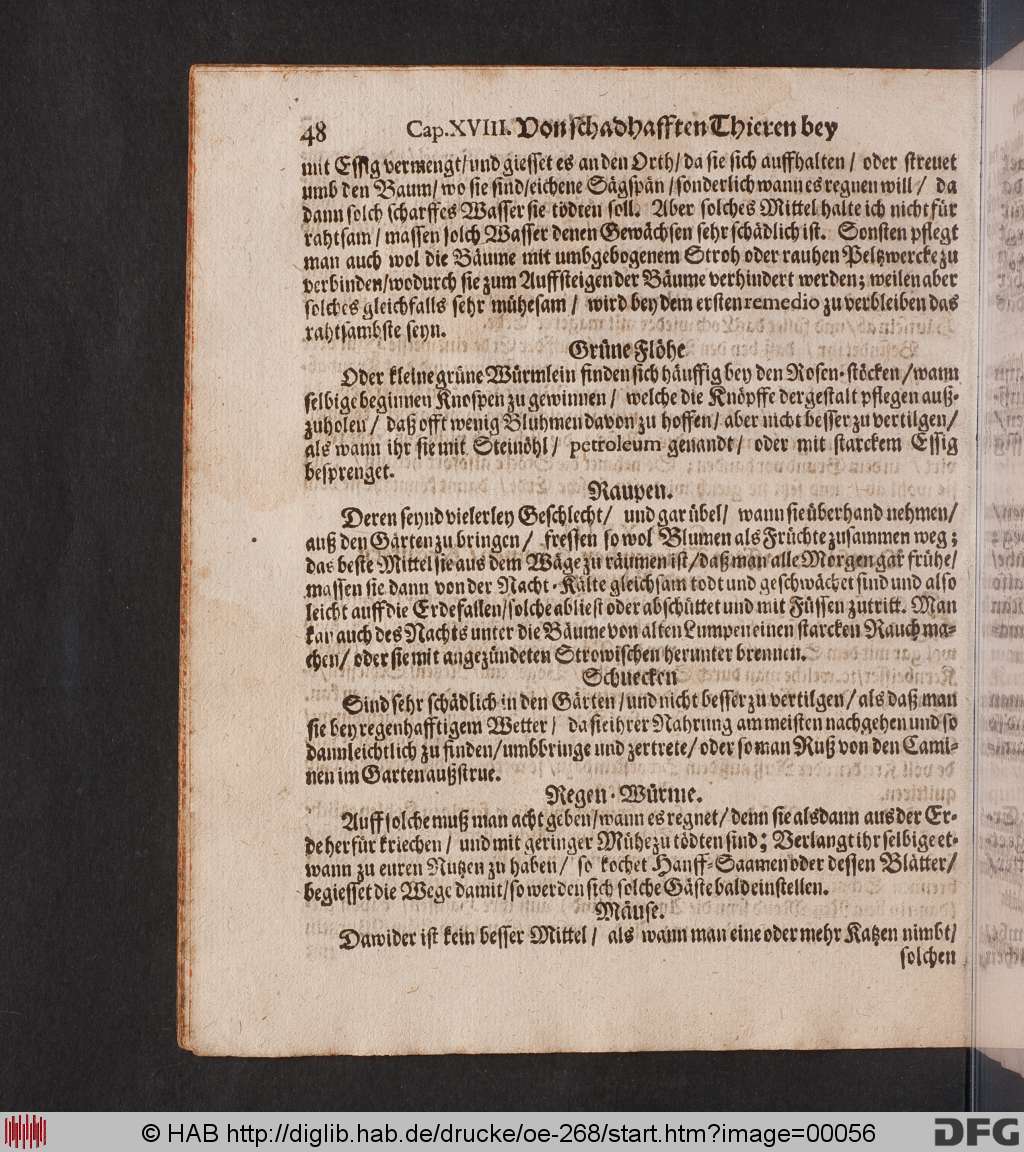 48 Cap. XVIII. Von schadhafften Thieren bey
mit Essig vermengt/ und giesset es an den Orth/ da sie sich auffhalten/ oder streuet
umb den Baum/ wo sie sind/ eichene Sägspän/ sonderlich wann es regnen will/ da
dann solch scharffes Wasser sie tödten soll. Aber solches Mittel halte ich nicht für
rahtsam/ massen solch Wasser denen Gewächsen sehr schädlich ist. Sonsten pflegt
man auch wol die Bäume mit umbgebogenem Stroh oder rauhen Peltzwercke zu
verbinden/ wodurch sie zum Auffsteigen der Bäume verhindert werden; weilen aber
solches gleichfalls sehr mühesam/ wird bey dem ersten remedio zu verbleiben das
rahtsambste seyn.
Grüne Flöhe
Oder kleine grüne Würmlein finden sich häuffig bey den Rosen-stöcken/ wann
selbige beginnen Knospen zu gewinnen/ welche die Knöpffe dergestalt pflegen auß-
zuholen/ daß offt wenig Bluhmen davon zu hoffen/ aber nicht besser zu vertilgen/
als wann ihr sie mit Steinöhl/ petroleum genandt/ oder mit starckem Essig
besprenget.
Raupen.
Deren seynd vielerley Geschlecht/ und gar übel/ wann sie überhand nehmen/
auß den Gärten zu bringen/ fressen so wol Blumen als Früchte zusammen weg;
das beste Mittel sie aus dem Wäge zu räumen ist/ daß man alle Morgen gar frühe/
massen sie dann von der Nacht-Kälte gleichsam todt und geschwächet sind und also
leicht auff die Erde fallen/ solche abliest oder abschüttet und mit Füssen zutritt. Man
kan auch des Nachts unter die Bäume von alten Lumpen einen starcken Rauch ma-
chen/ oder sie mit angezündeten Strowischen herunter brennen.
Schnecken
Sind sehr schädlich in den Gärten/ und nicht besser zu vertilgen/ als daß man
sie bey regenhafftigem Wetter/ da sie ihrer Nahrung am meisten nachgehen und so
dann leichtlich zu finden/ umbbringe und zertrete/ oder so man Ruß von den Cami-
nen im Garten außstrue.
Regen-Würme.
Auff solche muß man acht geben/ wann es regnet/ denn sie alsdann aus der Er-
de herfür kriechen/ und mit geringer Mühe zu tödten sind; Verlangt ihr selbige et-
wann zu euren Nutzen zu haben/ so kochet Hanff-Saamen oder dessen Blätter/
begiesset die Wege damit/ so werden sich solche Gäste bald einstellen.
Mäuse.
Dawider ist kein besser Mittel/ als wann man eine oder mehr Katzen nimbt/
solchen
© HAB http://diglib.hab.de/drucke/oe-268/start.htm?image=00056
DFG